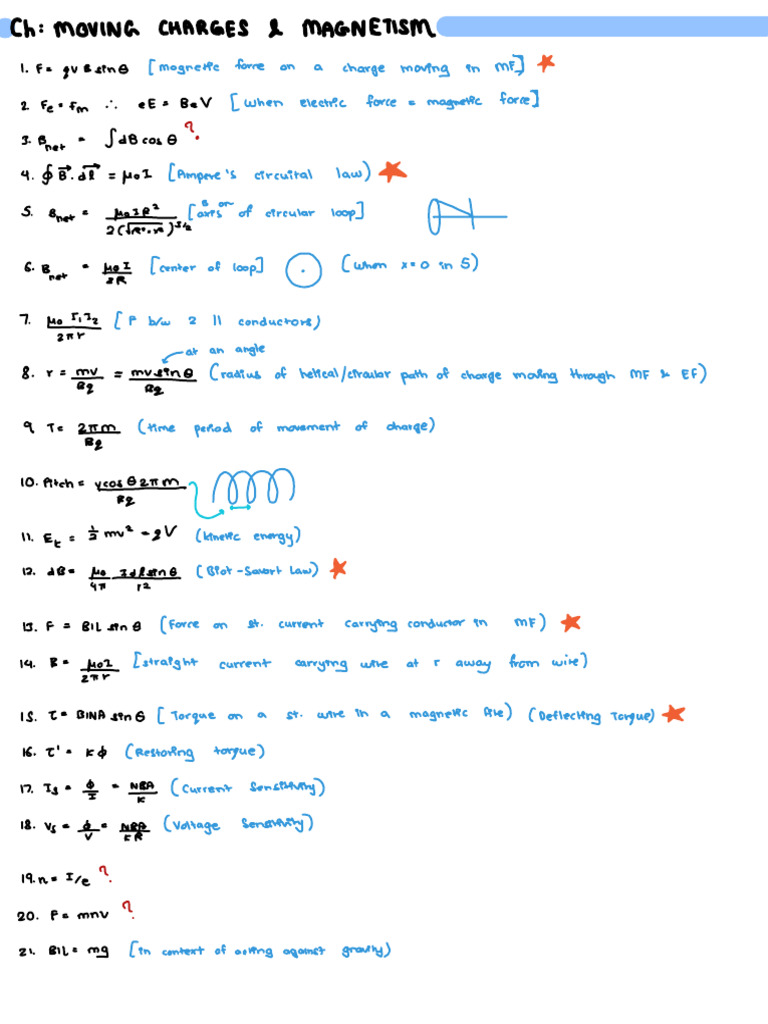 Ch: MOVING CHARGES & MAGNETISM
1. F= qvBsinθ [magnetic force on a charge moving in MF]
2. Fe = Fm ∴ eE = BeV [when electric force = magnetic force]
3. Bnet = ∫dBcosθ ?
4. ∮B⃗.dl⃗ = μoI [Ampere's circuital law)
5. Bnet = μoIR² / 2(√R²+x²)^3/2 [B on axis of circular loop]
6. Bnet = μoI / 2R [center of loop] (when x=0 in 5)
7. μo I₁I₂ / 2πr [F b/w 2 || conductors)
at an angle
8. r = mv / Bq = mvsinθ / Bq (radius of helical/circular path of charge moving through MF & EF)
9. T= 2πm / Bq (time period of movement of charge)
10. Pitch = vcosθ2πm / Bq
11. Et = ½ mv² = qV (kinetic energy)
12. dB= μo / 4π Idlsinθ / r2 (Biot-Savart Law)
13. F = BIL sinθ (Force on st. current carrying conductor in MF)
14. B= μoI / 2πr [straight current carrying wire at r away from wire)
15. τ= BINA sinθ [Torque on a st. wire in a magnetic file) (Deflecting Torque)
16. τ' = Kϕ (Restoring torque)
17. Is = ϕ / I = NBA / K (Current Sensitivity)
18. Vs = ϕ / V = NBA / KR (Voltage Sensitivity)
19. n= I/e ?
20. F= mnv ?
21. BIL= mg [in context of acting against gravity)